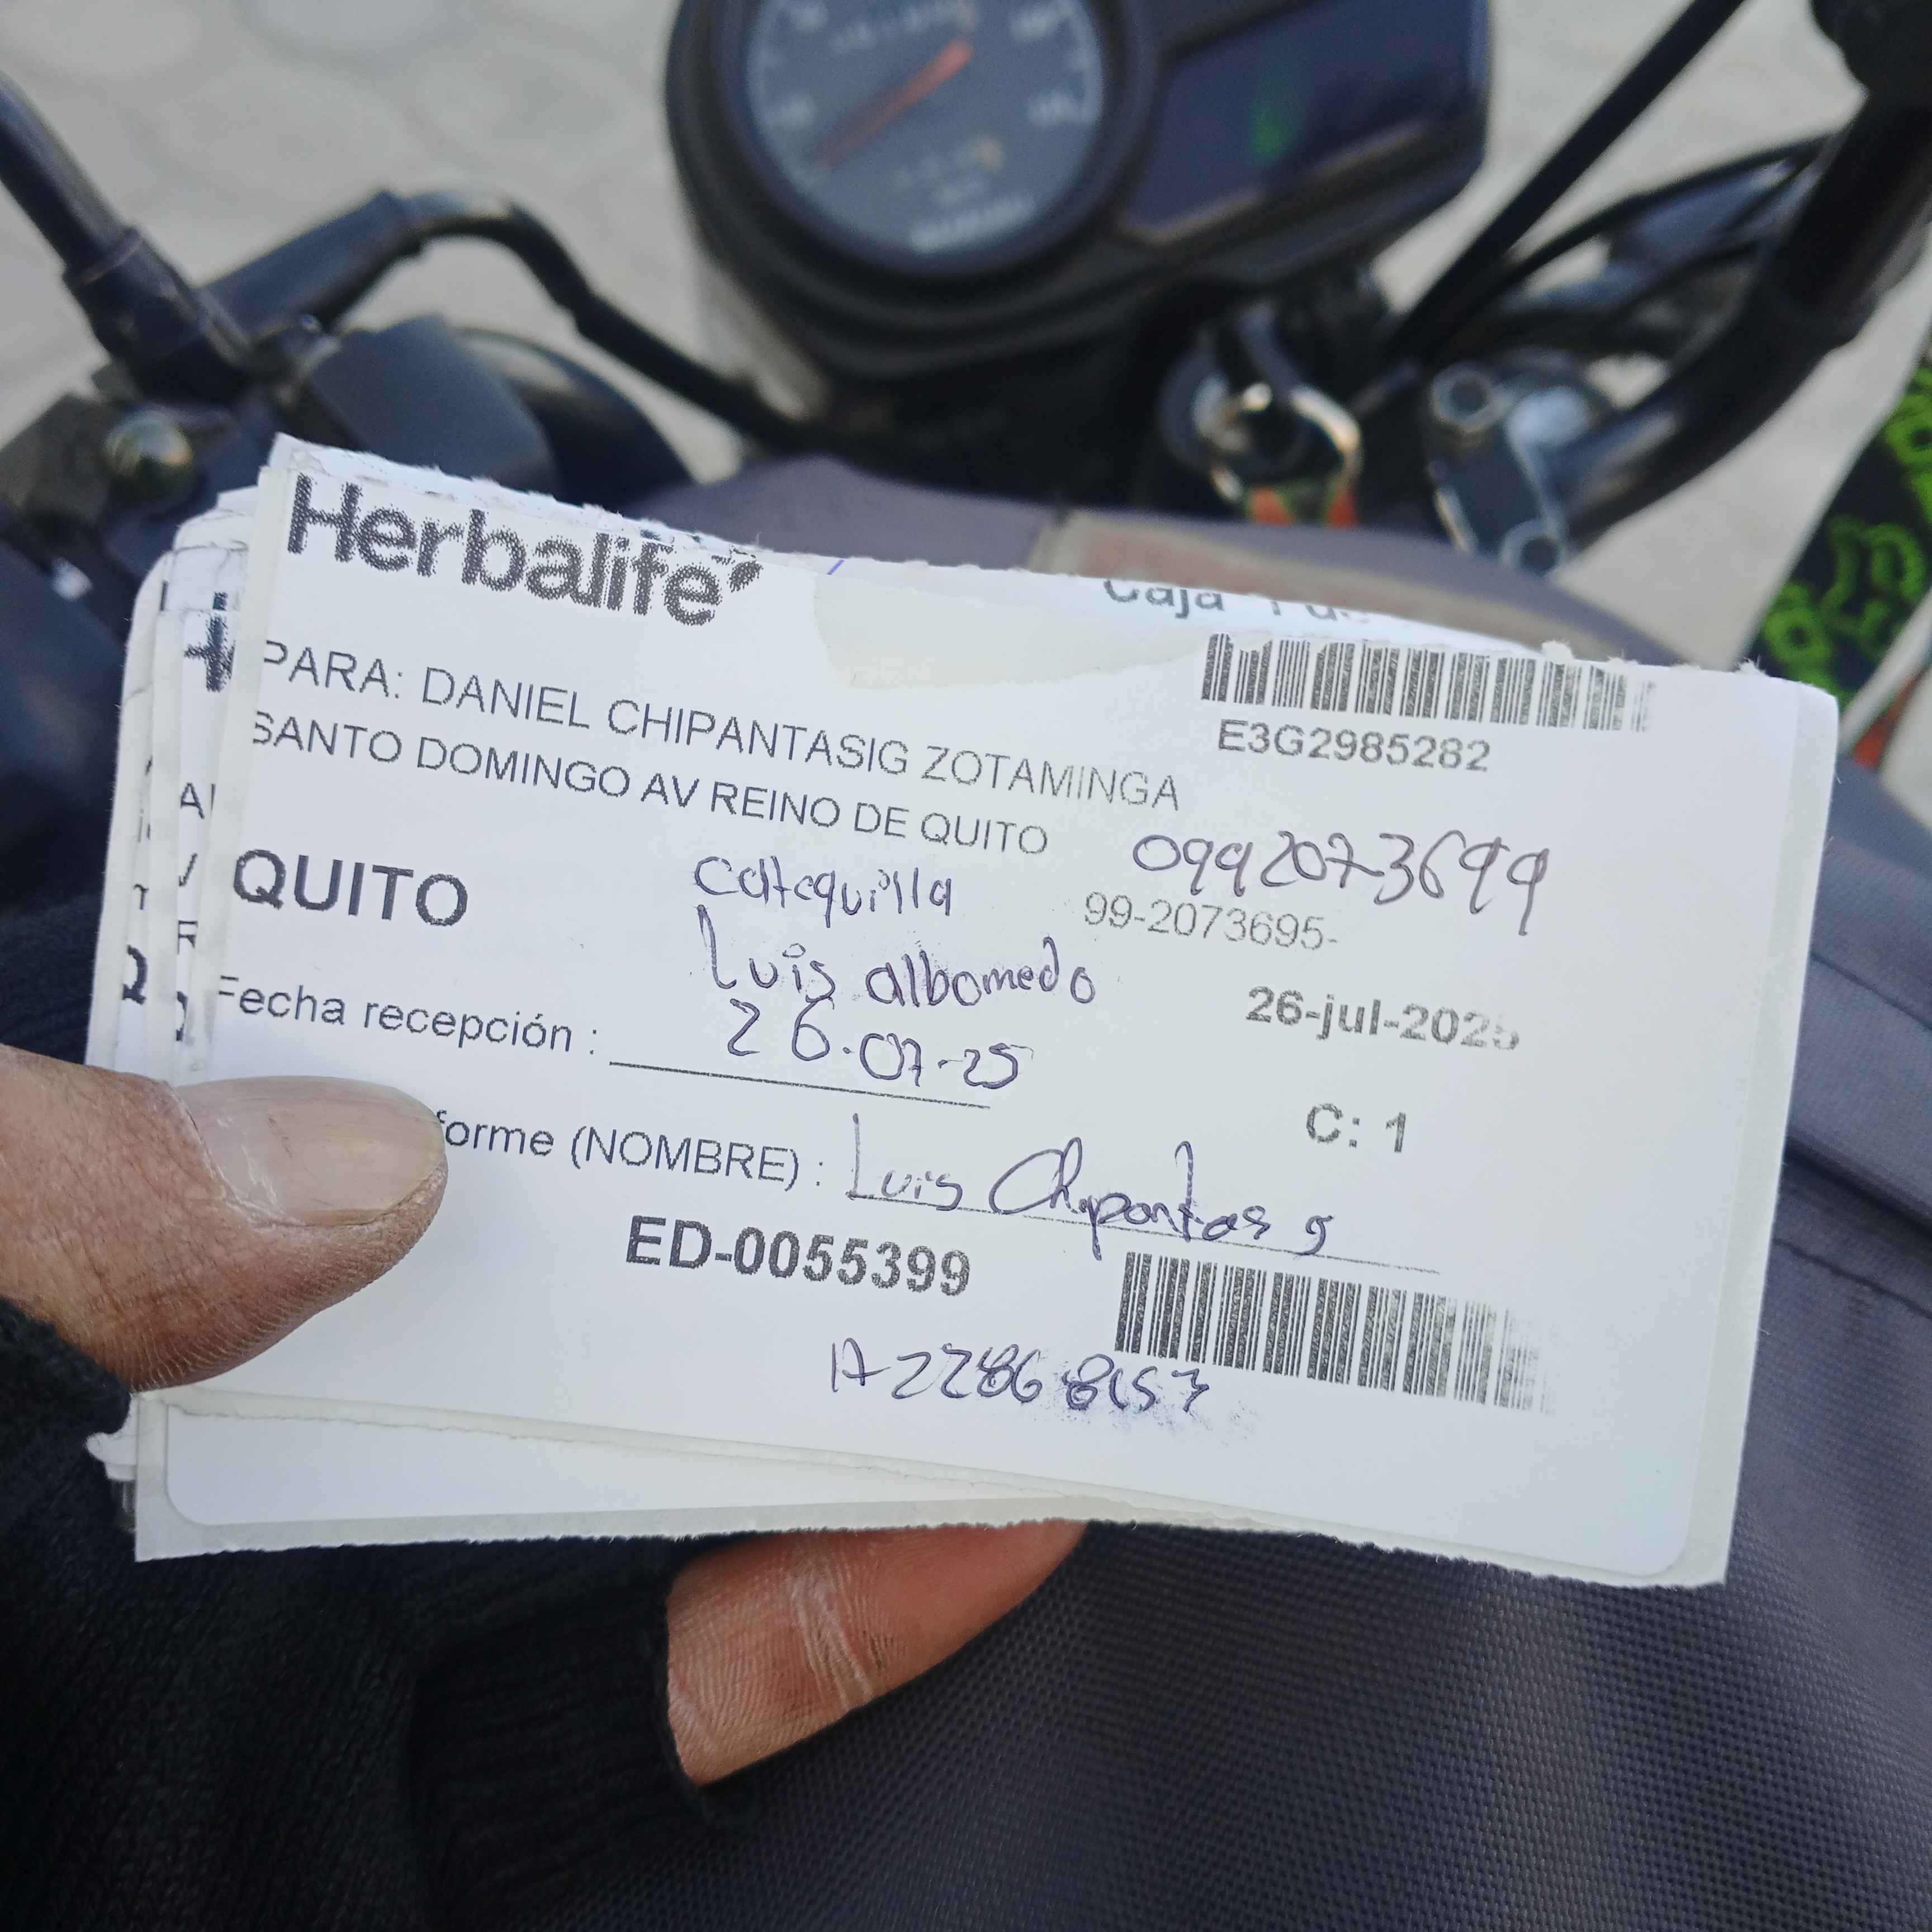 Herbalife
Caja
E3G2985282
PARA: DANIEL CHIPANTASIG ZOTAMINGA
SANTO DOMINGO AV REINO DE QUITO
0992073699
QUITO
catequilla
99-2073695-
Luis albomedo
26-jul-2025
Fecha recepción : 26-07-25
C: 1
forme (NOMBRE) : Luis Chipantas g
ED-0055399